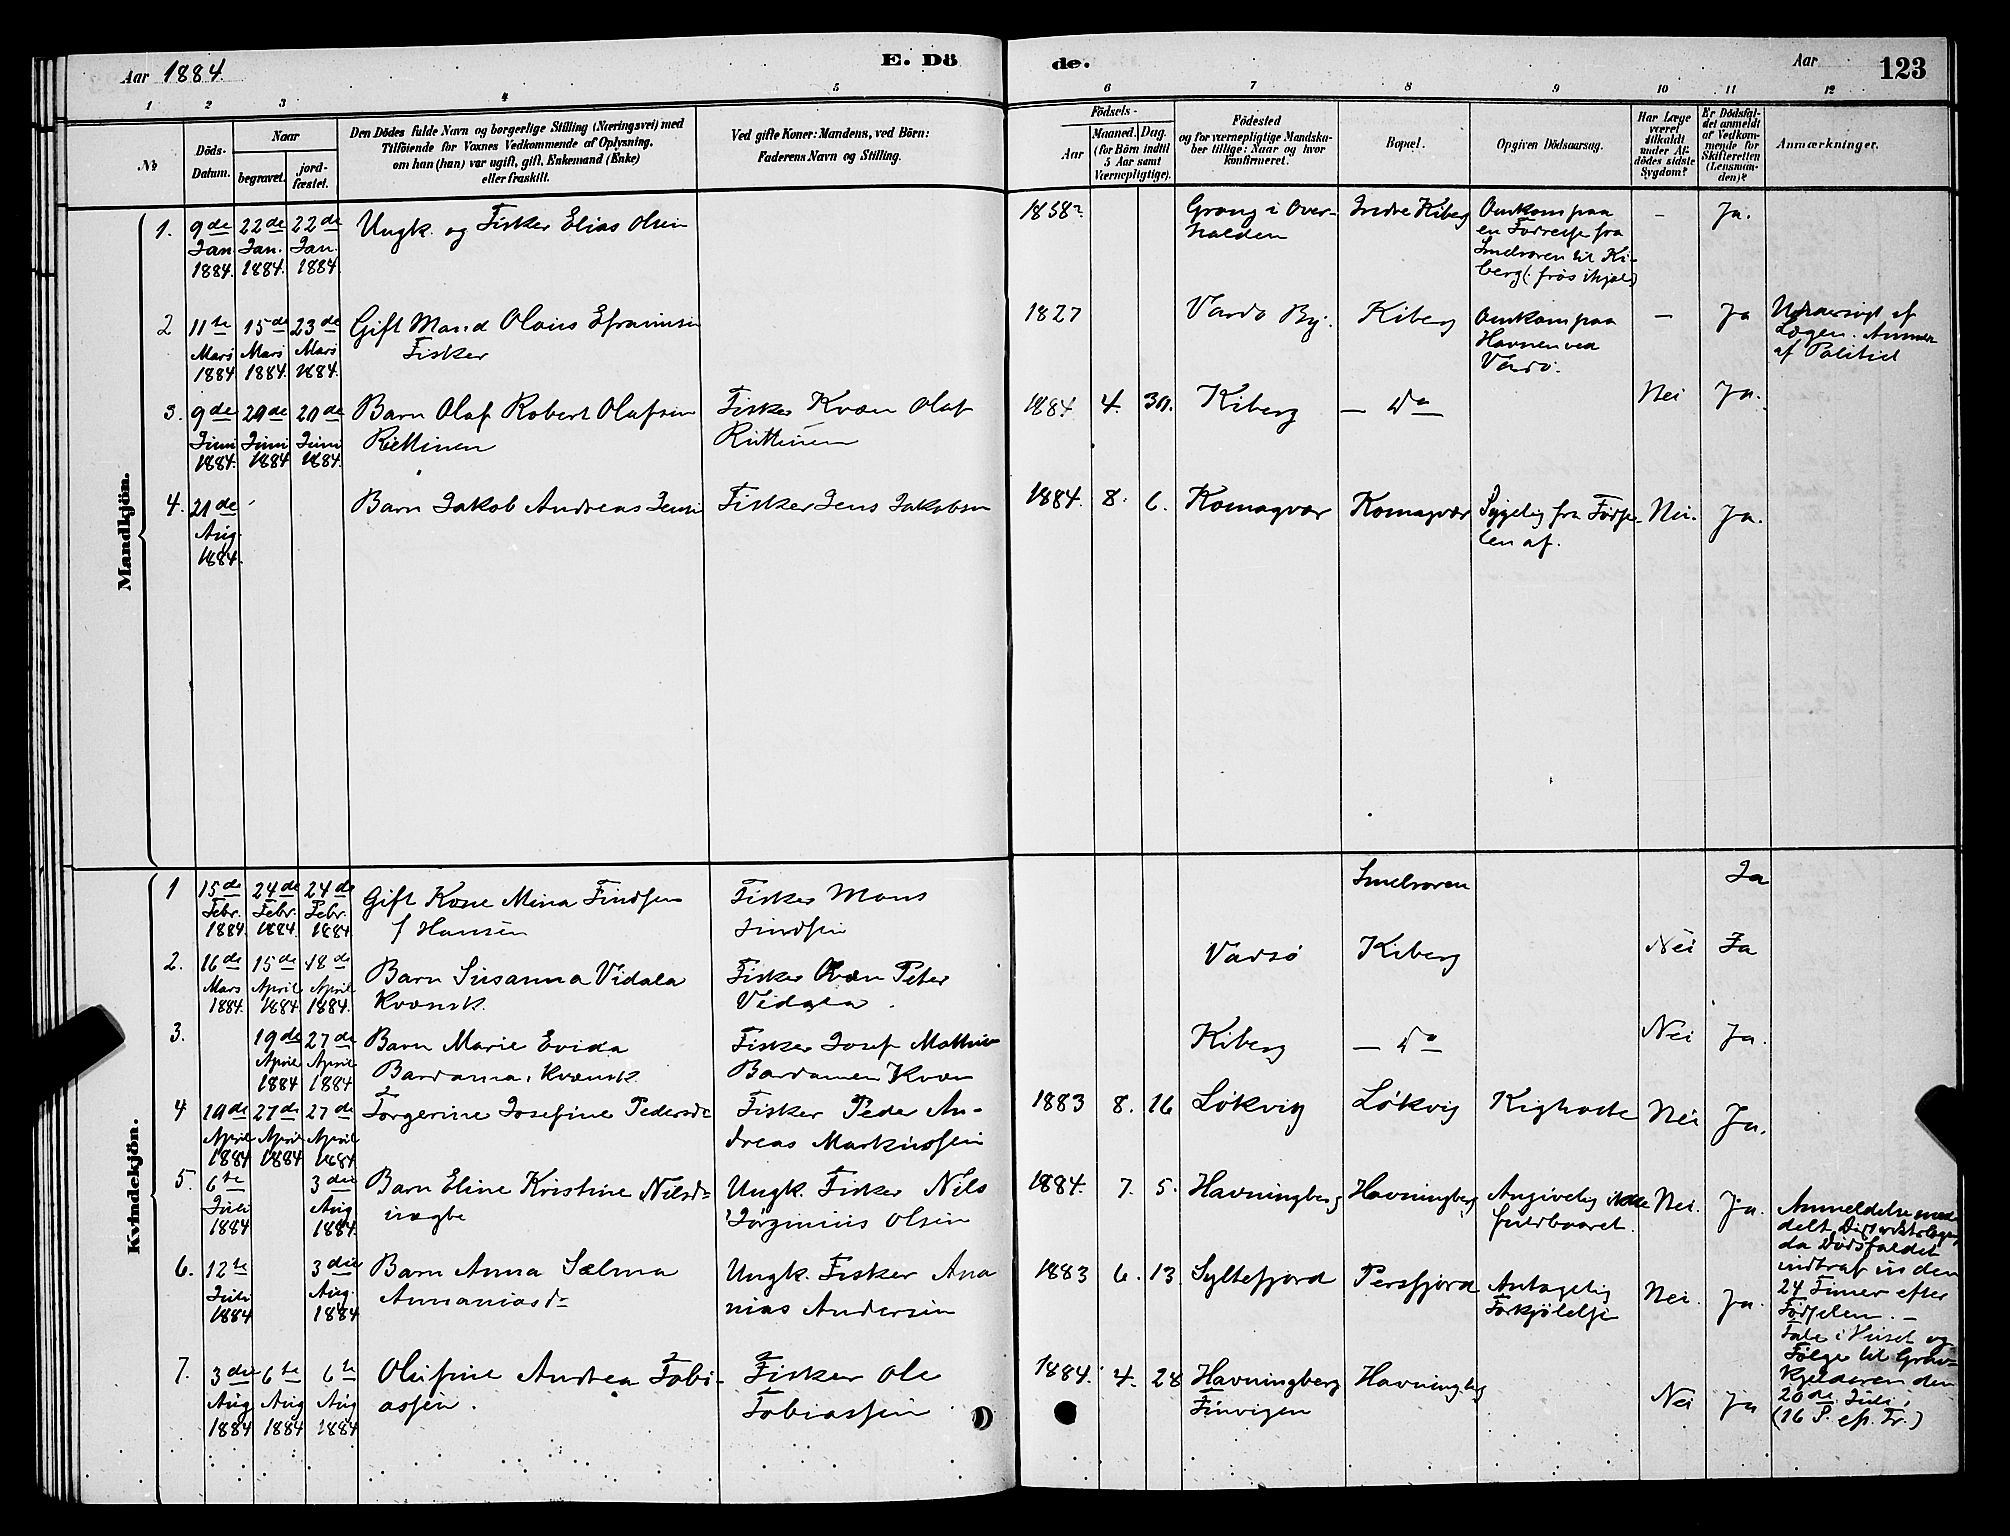 Aar 1884
E. Dö
de.
Aar
123
1 2 3 4 5 6 7 8 9 10 11 12
No
Döds-
Datum.
Naar
begravet.
jord-
fæstet.
Den Dödes fulde Navn og borgerlige Stilling (Næringsvei) med
Tilföiende for Voxnes Vedkommende af Oplysning,
om han (hun) var ugift, gift, Enkemand (Enke)
eller fraskilt.
Ved gifte Koner: Mandens, ved Börn:
Faderens Navn og Stilling.
Födsels-
Aar
Maaned. Dag.
(for Börn indtil
5 Aar samt
Værnepligtige).
Födested
og for værnepligtige Mandska-
ber tillige: Naar og hvor
konfirmeret.
Bopæl.
Opgiven Dödsaarsag.
Har Læge
været
tilkaldt
under Af-
dödes sidste
Sygdom?
Er Dödsfal-
det anmeldt
af Vedkom-
mende for
Skifteretten
(Lensman-
den)?
Anmærkninger.
Mandkjön.
1. 9de Jan. 1884. 22de Jan. 1884. 22de Jan. 1884.
Ungk. og Fisker Elias Olsen
1858?
Grong i Over-
halden
Indre Kiberg
Omkom paa
en Fodreise fra
Smelroren til Ki-
berg (frös ihjel)
–
Ja.
2 11te Mars 1884 15de Mars 1884. 23de Mars 1884.
Gift Mand Olaus Efraimsen
Fisker
1827
Vardö By.
Kiberg
Omkom paa
Havnen ved
Vardö.
–
Ja
af
Lægen.
af Politiet
3. 9de Juni 1884. 20de Juni 1884 20de Juni 1884.
Barn Olaf Robert Olafsen
Riettinen
Fisker Kvæn Olaf
Riettinen
1884 4. 30.
Kiberg
– Do –
Nei
Ja.
4. 21de Aug. 1884.
Barn Jakob Andreas Jensen
Fisker Jens Jakobsen
1884. 8. 6.
Komagvær
Komagvær
Sygelig fra Födse-
len af.
Nei.
Ja.
Kvindekjön.
1 15de Febr. 1884. 24de Febr. 1884. 24de Febr. 1884
Gift Kone Mina Findsen
f Hansen
Fisker Mons
Findsen
Smelroren
Ja
2. 16de Mars 1884. 15de April 1884 18de April 1884.
Barn Susanna Vidala
Kvænsk.
Fisker Kvæn Peter
Vidala.
Vadsö
Kiberg
Nei
Ja
3. 19de April 1884 27de April 1884
Barn Marie Evida
Bardama, Kvænsk.
Fisker Josef
Bardamen Kvæn
Kiberg
– Do –
Nei
Ja.
4 19de April 1884 27de April 1884 27de April 1884
Torgerine Josefine Pedersdr
Fisker Peder An-
dreas Markussen
1883 8. 16
Lökvig
Lökvig
Kighoste
Nei
Ja.
5. 6te Juli 1884 3die Aug 1884.
Barn Eline Kristine Nilsdr
uægte
Ungk. Fisker Nils
Jörginius Olsen
1884. 7. 5.
Havningberg
Havningberg
Angivelig ikke
fuldbaaret.
Nei.
Ja.
Anmeldelse med-
delt Distriktslægen,
da Dödsfaldet
indtraf inden
24 Timer efter
Födselen. –
6. 12te Juli 1884 3die Aug. 1884
Barn Anna Sælma
Annaniasdr
Ungk. Fisker Ana
nias Andersen
1883 6. 13.
Syltefjord
Persfjord
Antagelig
Forkjölelse
Nei.
Ja.
Tale i Huset og
Fölge til Grav-
kjelderen den
20de Juli
(16 S. ef. Tr.)
7. 3die Aug 1884 6te Aug 1884 6te Aug 1884
Olufine Andrea Tobi-
assen.
Fisker Ole
Tobiassen
1884. 4. 28
Havningberg
Finvigen
Havningberg
Nei
Ja